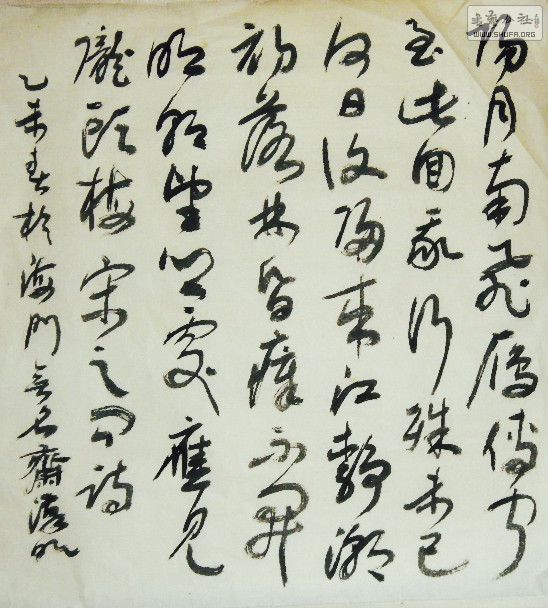 陽月南飛雁傳聞
至此回我行殊未已
何日復歸來江靜潮
初落林昏瘴不開
明朝望鄉處應見
隴頭梅宋之問詩
乙未春於海門無名齋
WWW.SHUFA.ORG